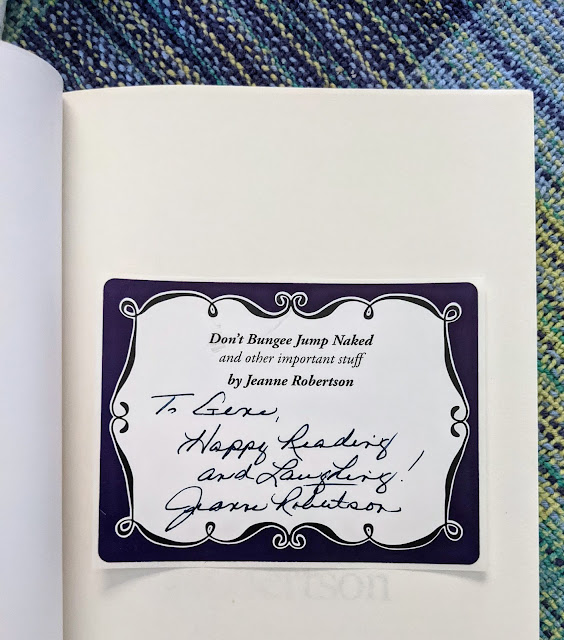 Don't Bungee Jump Naked
and other important stuff
by Jeanne Robertson
To Gene,
Happy Reading
and Laughing!
Jeanne Robertson